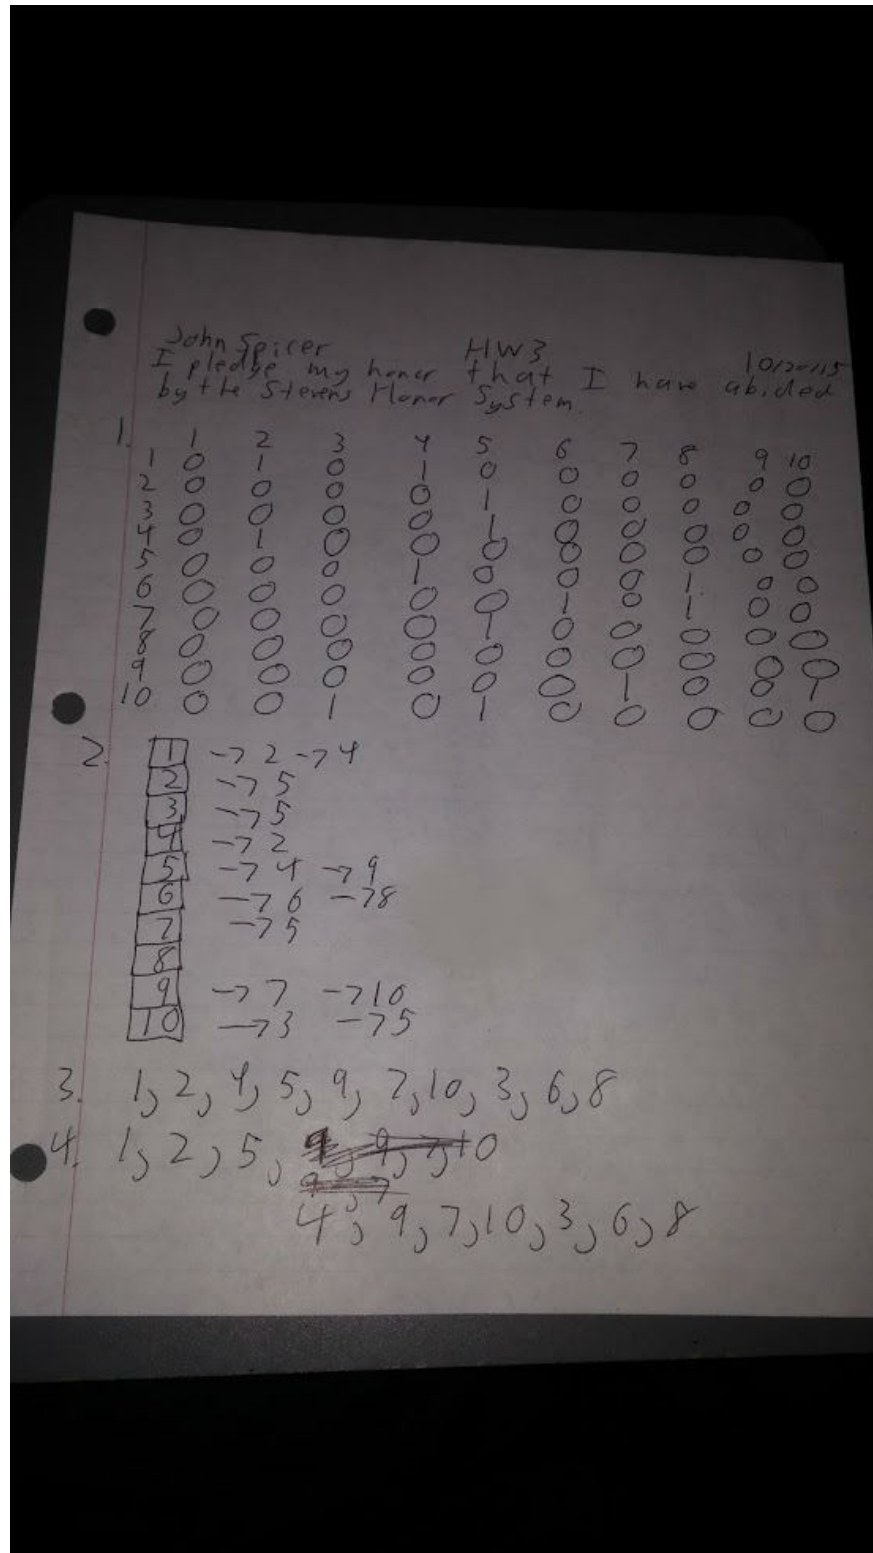 John Spicer HW3 10/20/15
I pledge my honor that I have abided
by the Stevens Honor System
1. 1 2 3 4 5 6 7 8 9 10
1 0 1 0 1 0 0 0 0 0 0
2 0 0 0 0 1 0 0 0 0 0
3 0 0 0 0 1 0 0 0 0 0
4 0 1 0 0 0 0 0 0 0 0
5 0 0 0 1 0 0 0 1 0 0
6 0 0 0 0 0 1 0 1 0 0
7 0 0 0 0 1 0 0 0 0 0
8 0 0 0 0 0 0 0 0 0 0
9 0 0 0 0 0 0 1 0 0 1
10 0 0 1 0 1 0 0 0 0 0
2. 1 → 2 → 4
2 → 5
3 → 5
4 → 2
5 → 4 → 9
6 → 6 → 8
7 → 5
8
9 → 7 → 10
10 → 3 → 5
3. 1, 2, 4, 5, 9, 7, 10, 3, 6, 8
4. 1, 2, 5,
4, 9, 7, 10, 3, 6, 8